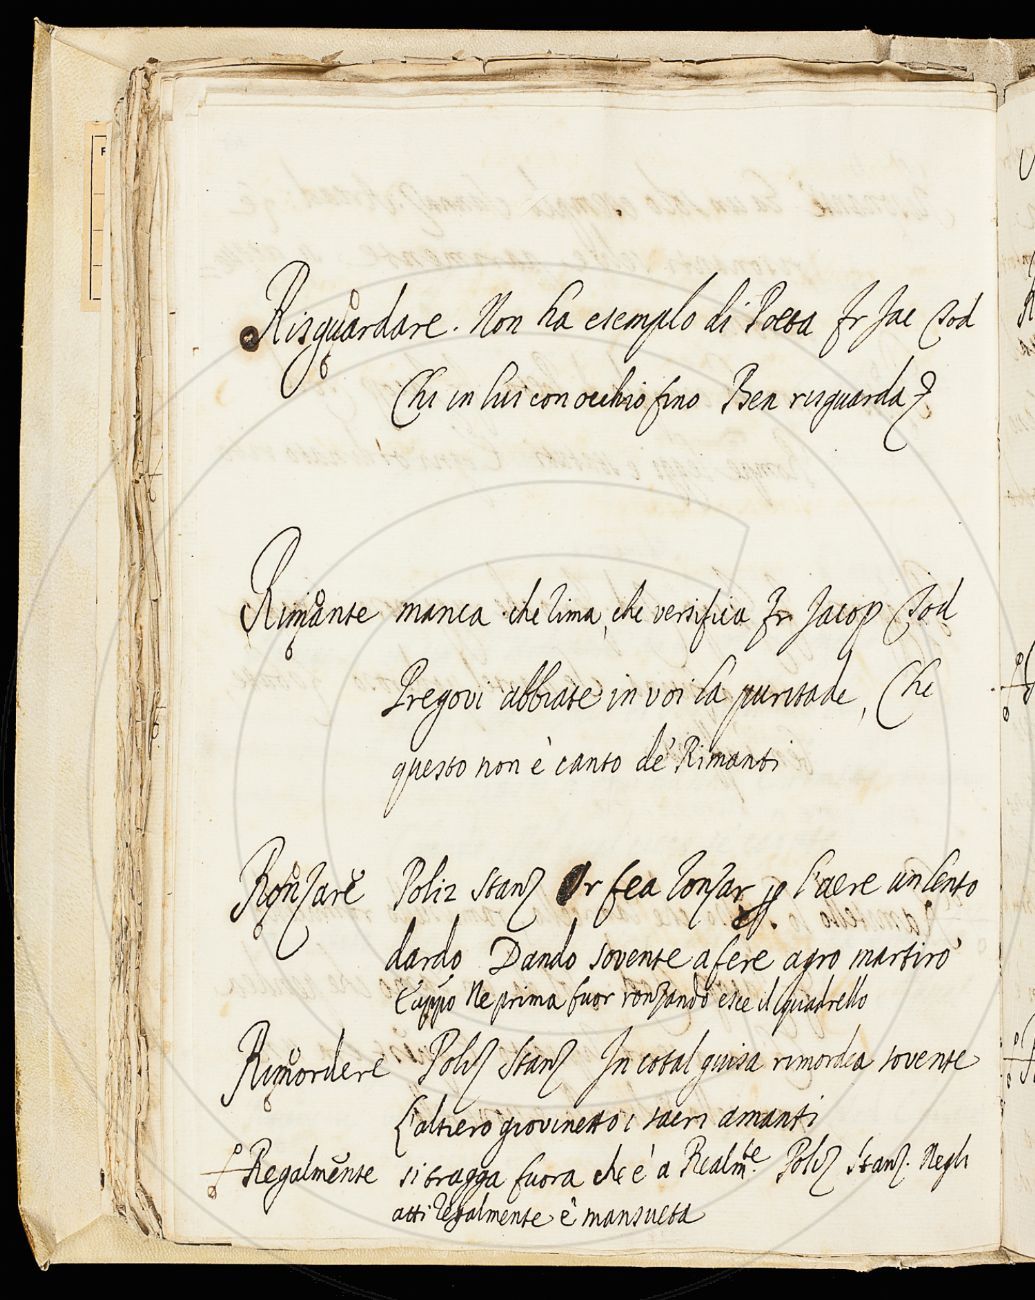 Risguardare. Non ha esemplo di Poeta Fr Jac Tod
Chi in lui con occhio fino Ben risguarda
Rimante manca. che rima, che versifica Fr Jacop Tod
Pregovi abbiate in voi la puritade, Che
questo non è canto de' Rimanti
Ronzare Poliz Stanz Or fea ronzar p l'aere un lento
dardo Dando sovente a fere agro martiro
E appo Ne prima fuor ronzando esce il quadrello
Rimordere Poliz Stanz In cotal guisa rimordea sovente
L'altiero giovinetto i sacri amanti
Regalmente si tragga fuora che è a Realmte. Poliz Stanz. Negli
atti regalmente è mansueta